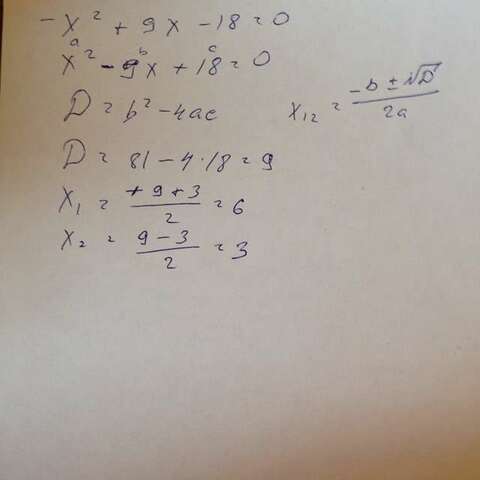 -x² + 9x - 18 = 0
a b c
x² - 9x + 18 = 0
D = b² - 4ac
x₁₂ = (-b ± √D) / 2a
D = 81 - 4·18 = 9
x₁ = (+9+3) / 2 = 6
x₂ = (9-3) / 2 = 3